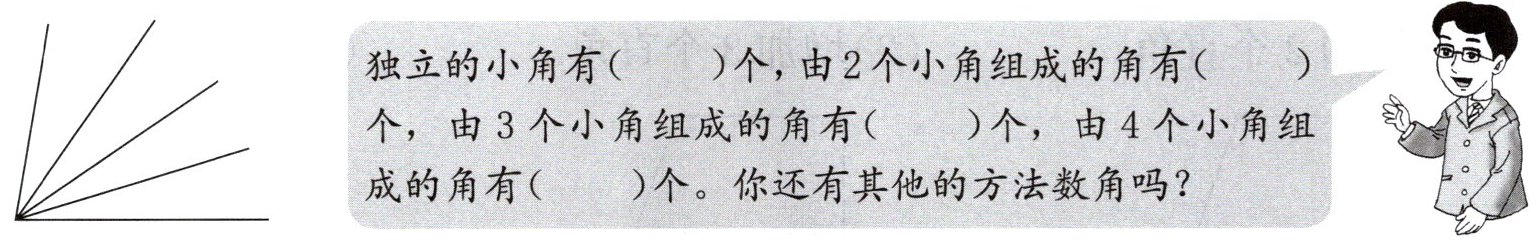 独立的小角有(　　)个,由2个小角组成的角有(　　)
个，由3个小角组成的角有(　　)个，由4个小角组
成的角有(　　)个。你还有其他的方法数角吗?